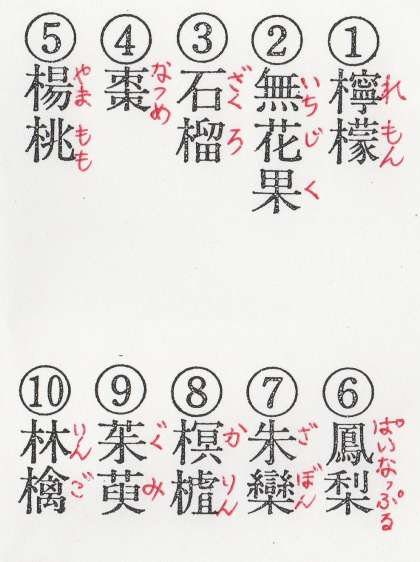 ① 檸檬 れもん
② 無花果 いちじく
③ 石榴 ざくろ
④ 棗 なつめ
⑤ 楊桃 やまもも
⑥ 鳳梨 ぱいなっぷる
⑦ 朱欒 ざぼん
⑧ 榠樝 かりん
⑨ 茱萸 ぐみ
⑩ 林檎 りんご